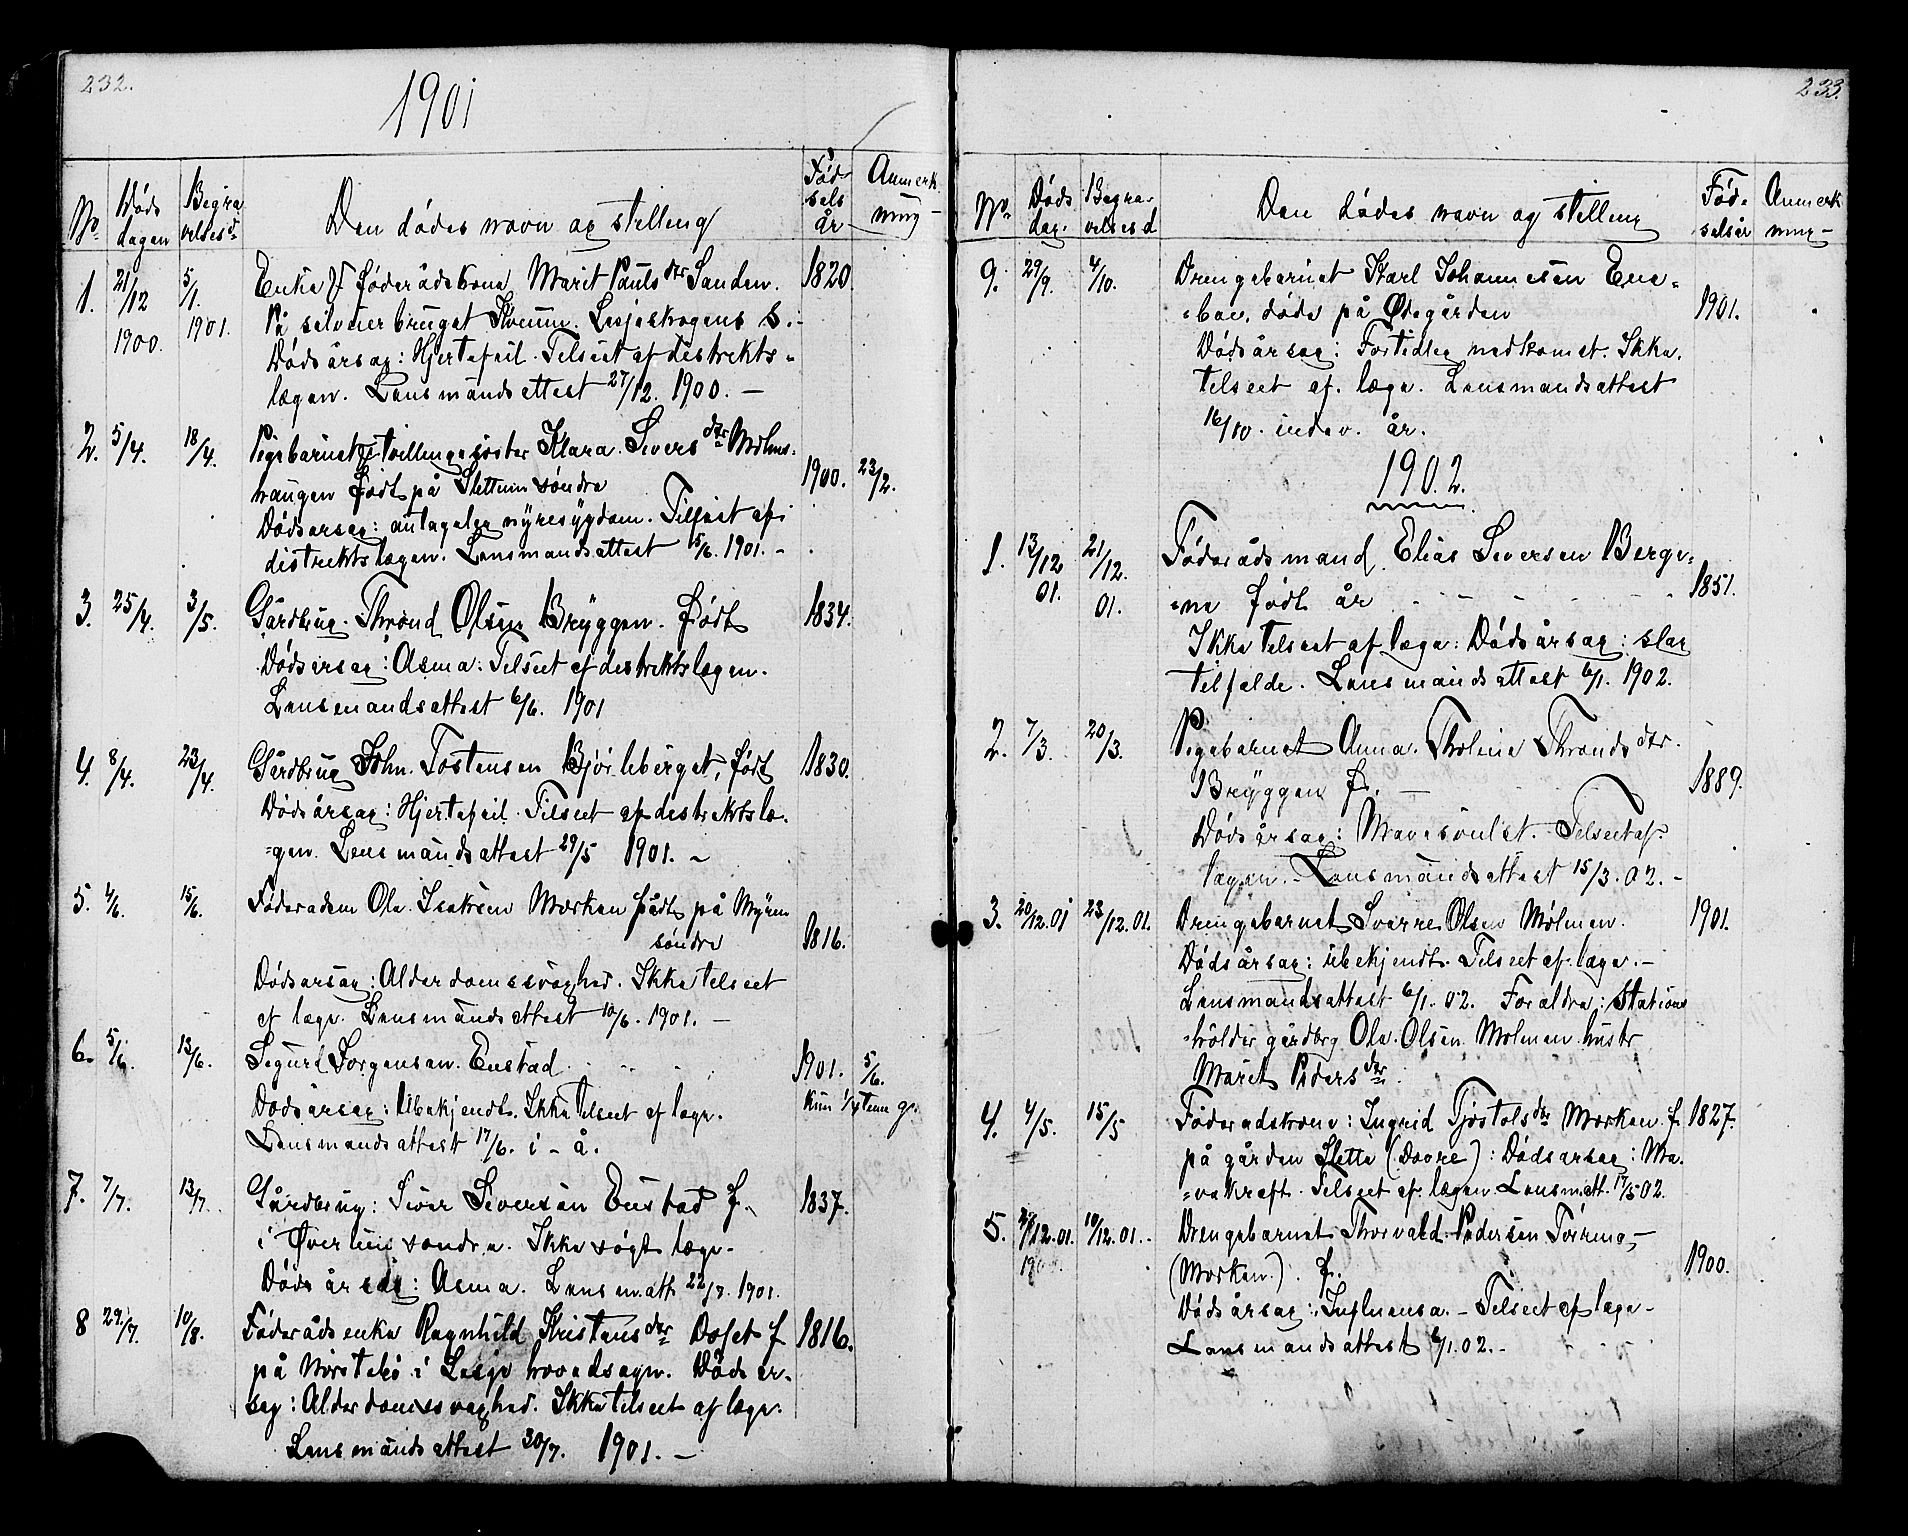 232.
1901
No. Døds dagen Begravelsesd. Den dødes navn og stilling Fødselsår Anmerkning
1. 21/12 1900. 5/1. 1901. Enke & føderådskone Marit Paulsdtr Sanden. 1820
På silverbruget Kveum. Lesjeskogens S.
Dødsårsag: Hjertefeil. Tilseet af distrikts-
lægen. Lensmandsattest 27/12. 1900. —
2. 5/4. 18/4. Pigebarnet & tvillingesøster Klara Siversdtr Mølms-
haugen født på Slettum søndre 1900. 23/2.
Dødsarsag: antagelig nyresygdom. Tilseet af
distriktslægen. Lensmandsattest 5/6. 1901. -
3. 25/4. 3/5. Gårdbrug. Thrond Olsen Bryggen. født 1834.
Dødsarsag: Asma: Tilseet af distriktslægen.
Lensmandsattest 6/6. 1901
4. 8/4. 23/4. Gårdbrug John Tostensen Bjørleberget, født 1830.
Dødsårsag: Hjertefeil. Tilseet af distriktslæ-
gen. Lensmandsattest 29/5 1901. ~
5. 4/6. 15/6. Føderadsm Ole Isaksen Morken født på Myren
søndre 1816.
Dødsarsag: Alderdomssvaghed. Ikke tilseet
af læge. Lensmandsattest 10/6. 1901. —
6. 5/6. 13/6. Sigurd Jorgensen Enstad 1901. 5/6.
Dødsårsag: Ubekjendt. Ikke tilseet af læge. kun 1/4 time g.
Lensmandsattest 17/6. i - å.
7. 7/7. 13/7. Gårdbrug: Siver Siversen Enstad f. 1837.
i Øverlien søndre. Ikke søgt læge.
Dødsårsag: Asma. Lensm.att. 22/7. 1901.
8 29/7. 10/8. Føderådsenke Ragnhild Kristensdtr Doset f 1816.
på Norstebø i Lesje hovedsogn. Dødsår-
sag: Alderdomssvaghed. Ikke tilseet af læge.
Lensmandsattest 30/7. 1901. —
233.
No. Dødsdag. Begravelsesd Den dødes navn og stilling Fødselsår Anmerkning—
9. 29/9. 4/10. Drengebarnet Karl Johannesen Ene-
boe, døde på Ødegården 1901.
Dødsårsag: Fortidlig nedkomst. Ikke
tilseet af læge. Lensmandsattest
16/10. indev. år.
1902.
1. 13/12 01. 21/12. 01. Føderådsmand Elias Siversen Berge-
ne født år 1851.
Ikke tilseet af læge: Dødsårsag: slag
tilfælde. Lensmandsattest 6/1. 1902.
2. 7/3. 20/3. Pigebarnet Anna Tholine Throndsdtr.
Bryggen f. — 1889.
Dødsårsag: Mavesvulst. Tilseet af
lægen. - Lensmandsattest 15/3. 02. -
3. 20/12.01 23/12.01. Drengebarnet Sverre Olsen Mølmen. 1901.
Dødsårsag: Ubekjendt. Tilseet af læge. -
Lensmandsattest 6/1. 02. Forældre: Stations
holder gårdbrg Ole Olsen Mølmen hustr
Marit Pedersdtr.
4. 4/5. 15/5 Føderadskone: Ingrid Tjostolsdtr Morken f 1827.
på gården Slette (Dovre): Dødsarsag: Ma-
vekræft. Tilseet af lægen. Lensm.att. 17/5 02.
5. /12.01. 10/12.01. Drengebarnet Thorvald Pedersen Torrmo -
(Morken). f. 1900.
Dødsårsag: Influensa. - Tilseet af læge -
Lensmandsattest 6/1. 02. -